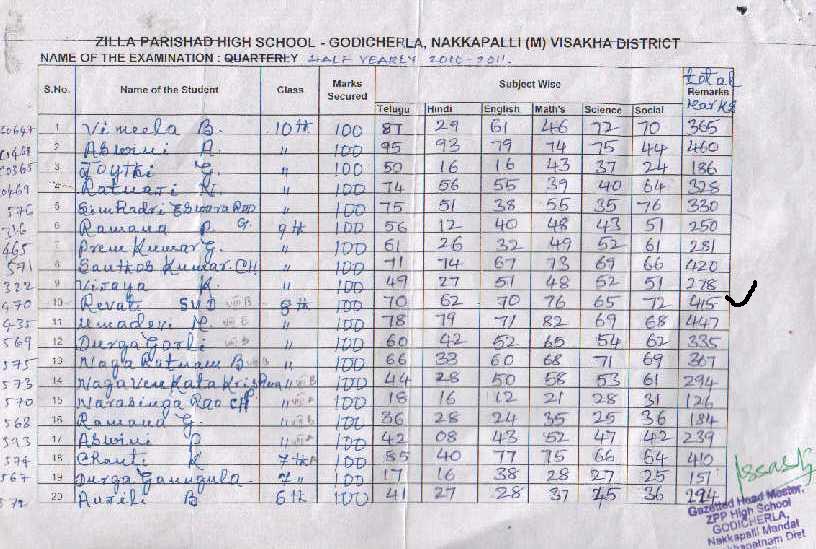 ZILLA PARISHAD HIGH SCHOOL - GODICHERLA, NAKKAPALLI (M) VISAKHA DISTRICT
NAME OF THE EXAMINATION : QUARTERLY HALF YEARLY 2010-2011.
S.No. Name of the Student Class Marks Secured Subject Wise Total Remarks Marks
Telugu Hindi English Math's Science Social
1 Vimeela B. 10th 100 87 29 61 46 72 70 365
2 Aswini A. " 100 95 93 79 74 75 44 460
3 Joythi G. " 100 50 16 16 43 37 24 186
4 Ratnari K. " 100 74 56 55 39 40 64 328
576 5 Simhadri Eswara Rao " 100 75 51 38 55 35 76 330
6 Ramana P. G. 9th 100 56 12 40 48 43 51 250
465 7 Prem Kumar G. " 100 61 26 32 49 52 61 281
571 8 Santhos Kumar. CH " 100 71 74 67 73 69 66 420
322 9 Vijaya K. " 100 49 27 51 48 52 51 278
470 10 Revati SVD VIII B 8th 100 70 62 70 76 65 72 415
435 11 Umadevi M. VIII B " 100 78 79 71 82 69 68 447
569 12 Durga Gorli VIII B " 100 60 42 52 65 54 62 335
575 13 Naga Ratnam B VIII B " 100 66 33 60 68 71 69 367
573 14 Naga Venkata Krishna " VIII B 100 44 28 50 58 53 61 294
570 15 Narasinga Rao CH " VIII A 100 18 16 12 21 28 31 126
568 16 Ramana G. " VIII B 100 36 28 24 35 25 36 184
593 17 Aswini P " VIII A 100 42 08 43 52 47 42 239
574 18 Chanti K 7th A 100 85 40 77 75 66 64 410
567 19 Durga Ganugula 7 " 100 17 16 38 28 27 25 151
572 20 B 6th 100 41 27 28 37 45 36
Gazetted Head Master,
ZPP High School
GODICHERLA,
Nakkapalli Mandal
Dist